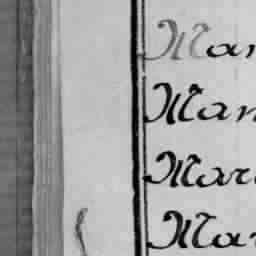 Mar
Man
Mar
Mar